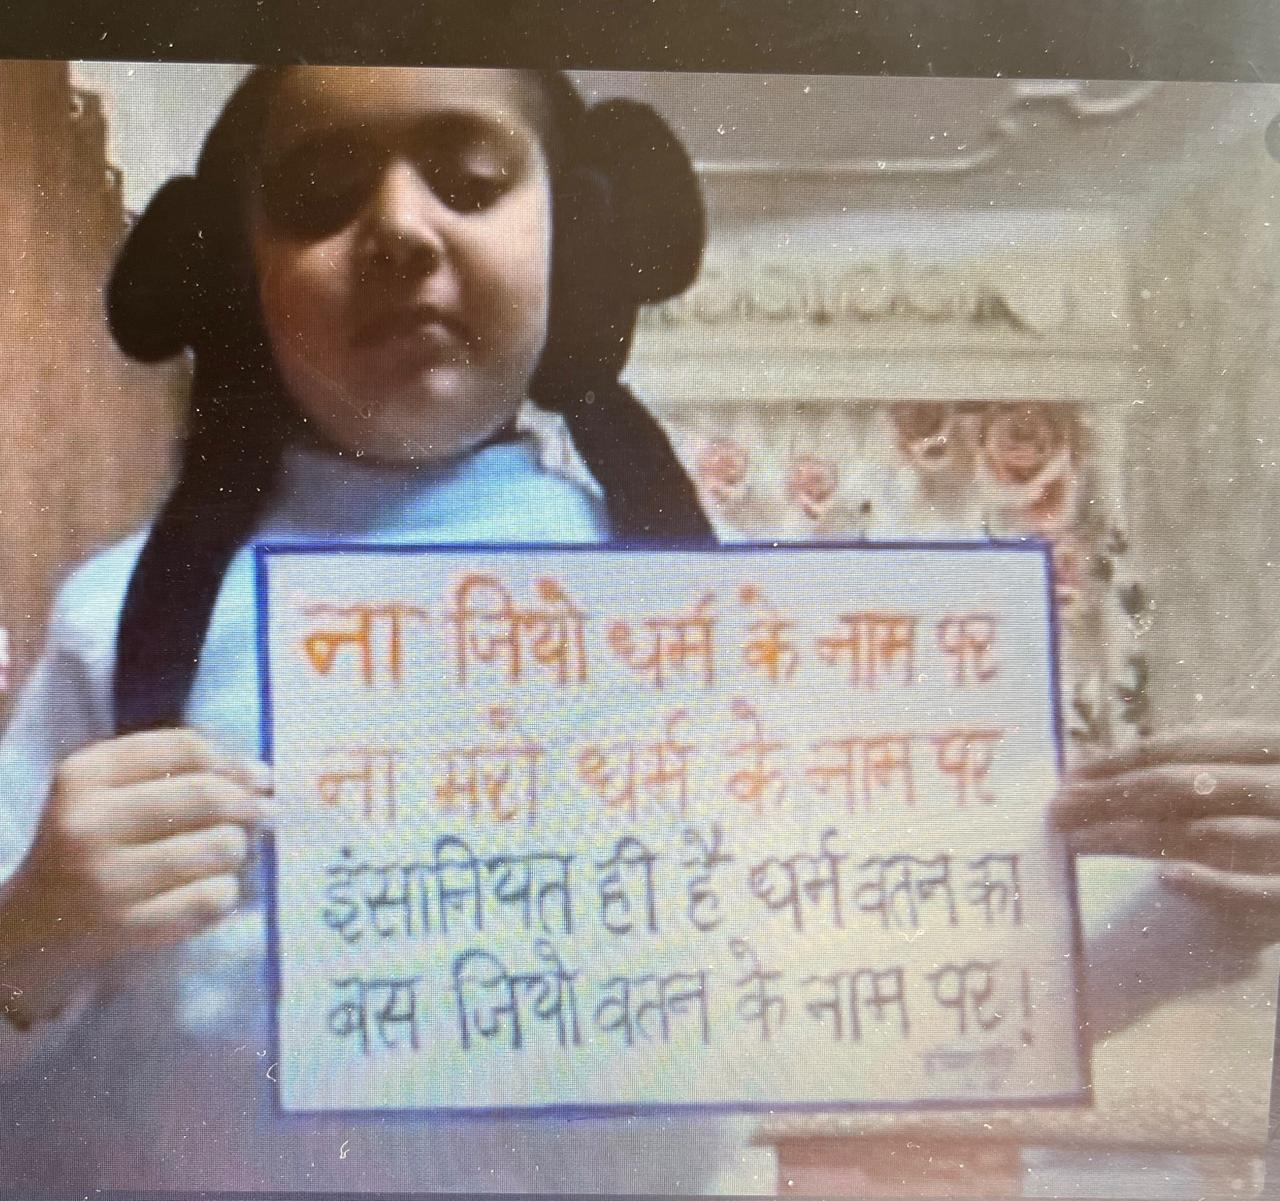 ना जियो धर्म के नाम पर
ना मरो धर्म के नाम पर
इंसानियत ही है धर्म वतन का
बस जियो वतन के नाम पर!